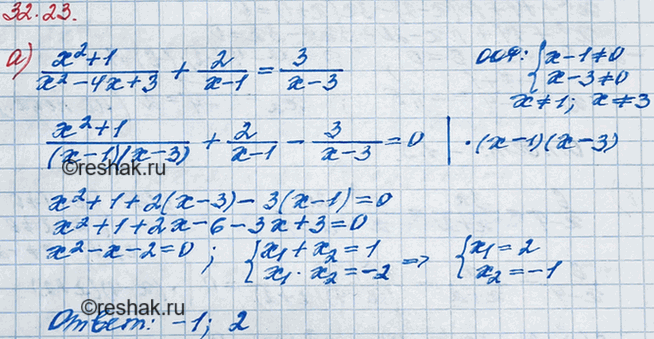 32.23.
а) (x²+1)/(x²-4x+3) + 2/(x-1) = 3/(x-3)    ОДЗ: { x-1≠0
x-3≠0
x≠1; x≠3
(x²+1)/((x-1)(x-3)) + 2/(x-1) - 3/(x-3) = 0 | ·(x-1)(x-3)
x²+1+2(x-3)-3(x-1)=0
x²+1+2x-6-3x+3=0
x²-x-2=0; { x₁+x₂=1 ⇒ { x₁=2
x₁·x₂=-2    x₂=-1
©reshak.ru
Ответ: -1; 2
©reshak.ru